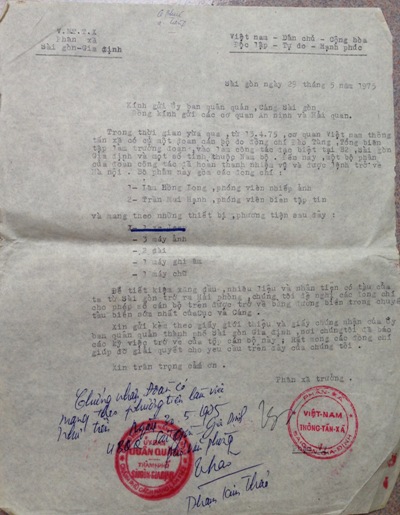 V.NT.T.X
Phân xã
Sài gòn-Gia định
Việt nam - Dân chủ - Cộng hòa
Độc lập - Tự do - Hạnh phúc
Sài gòn ngày 29 tháng 5 năm 1975
Kính gửi Ủy ban quân quản, Cảng Sài gòn
Đồng kính gửi các cơ quan An ninh và Hải quan.
Trong thời gian vừa qua, từ 13.4.75, cơ quan Việt nam thông
tấn xã có cử một đoàn cán bộ do đồng chí Đào Tùng, Tổng biên
tập làm trưởng đoàn, vào làm công tác đặc biệt tại B2, Sài gòn
Gia định và một số tỉnh thuộc Nam bộ. Đến nay, một bộ phận
của đoàn công tác đã hoàn thành nhiệm vụ và được lệnh trở về
Hà nội. Bộ phận này gồm các đồng chí :
1- Hồng Long, phóng viên nhiếp ảnh
2- Trần Mai Hạnh, phóng viên biên tập tin
và mang theo những thiết bị, phương tiện sau đây :
- 3 máy ảnh
- 1 máy ghi âm
- 3 máy chữ
Để tiết kiệm xăng dầu, nhiên liệu và nhân tiện có tàu của
ta từ Sài gòn trở ra Hải phòng, chúng tôi đề nghị các đồng chí
cho phép số cán bộ trên được trở về bằng đường biển trong chuyến
tàu biển sớm nhất của Cục và Cảng.
Xin gửi kèm theo giấy giới thiệu và giấy chứng nhận của ủy
ban quân quản thành phố Sài gòn Gia định, nơi chúng tôi đã báo
các kỳ việc trở về của tổ, cán bộ này. Rất mong các đồng chí
giúp đỡ giải quyết cho yêu cầu trên đây của chúng tôi.
Xin trân trọng cảm ơn.
Phân xã trưởng.
Chứng nhận Đoàn có
mang theo phương tiện làm việc
như trên
Ngày 29-5-1975
Gia Định
ỦY BAN
QUÂN QUẢN
THÀNH PHỐ
SÀIGÒN-GIAĐỊNH
Thảo
Phạm Kim Thảo
PHÂN-XÃ
VIỆT-NAM
THÔNG-TẤN-XÃ
SAIGON-GIA-ĐỊNH